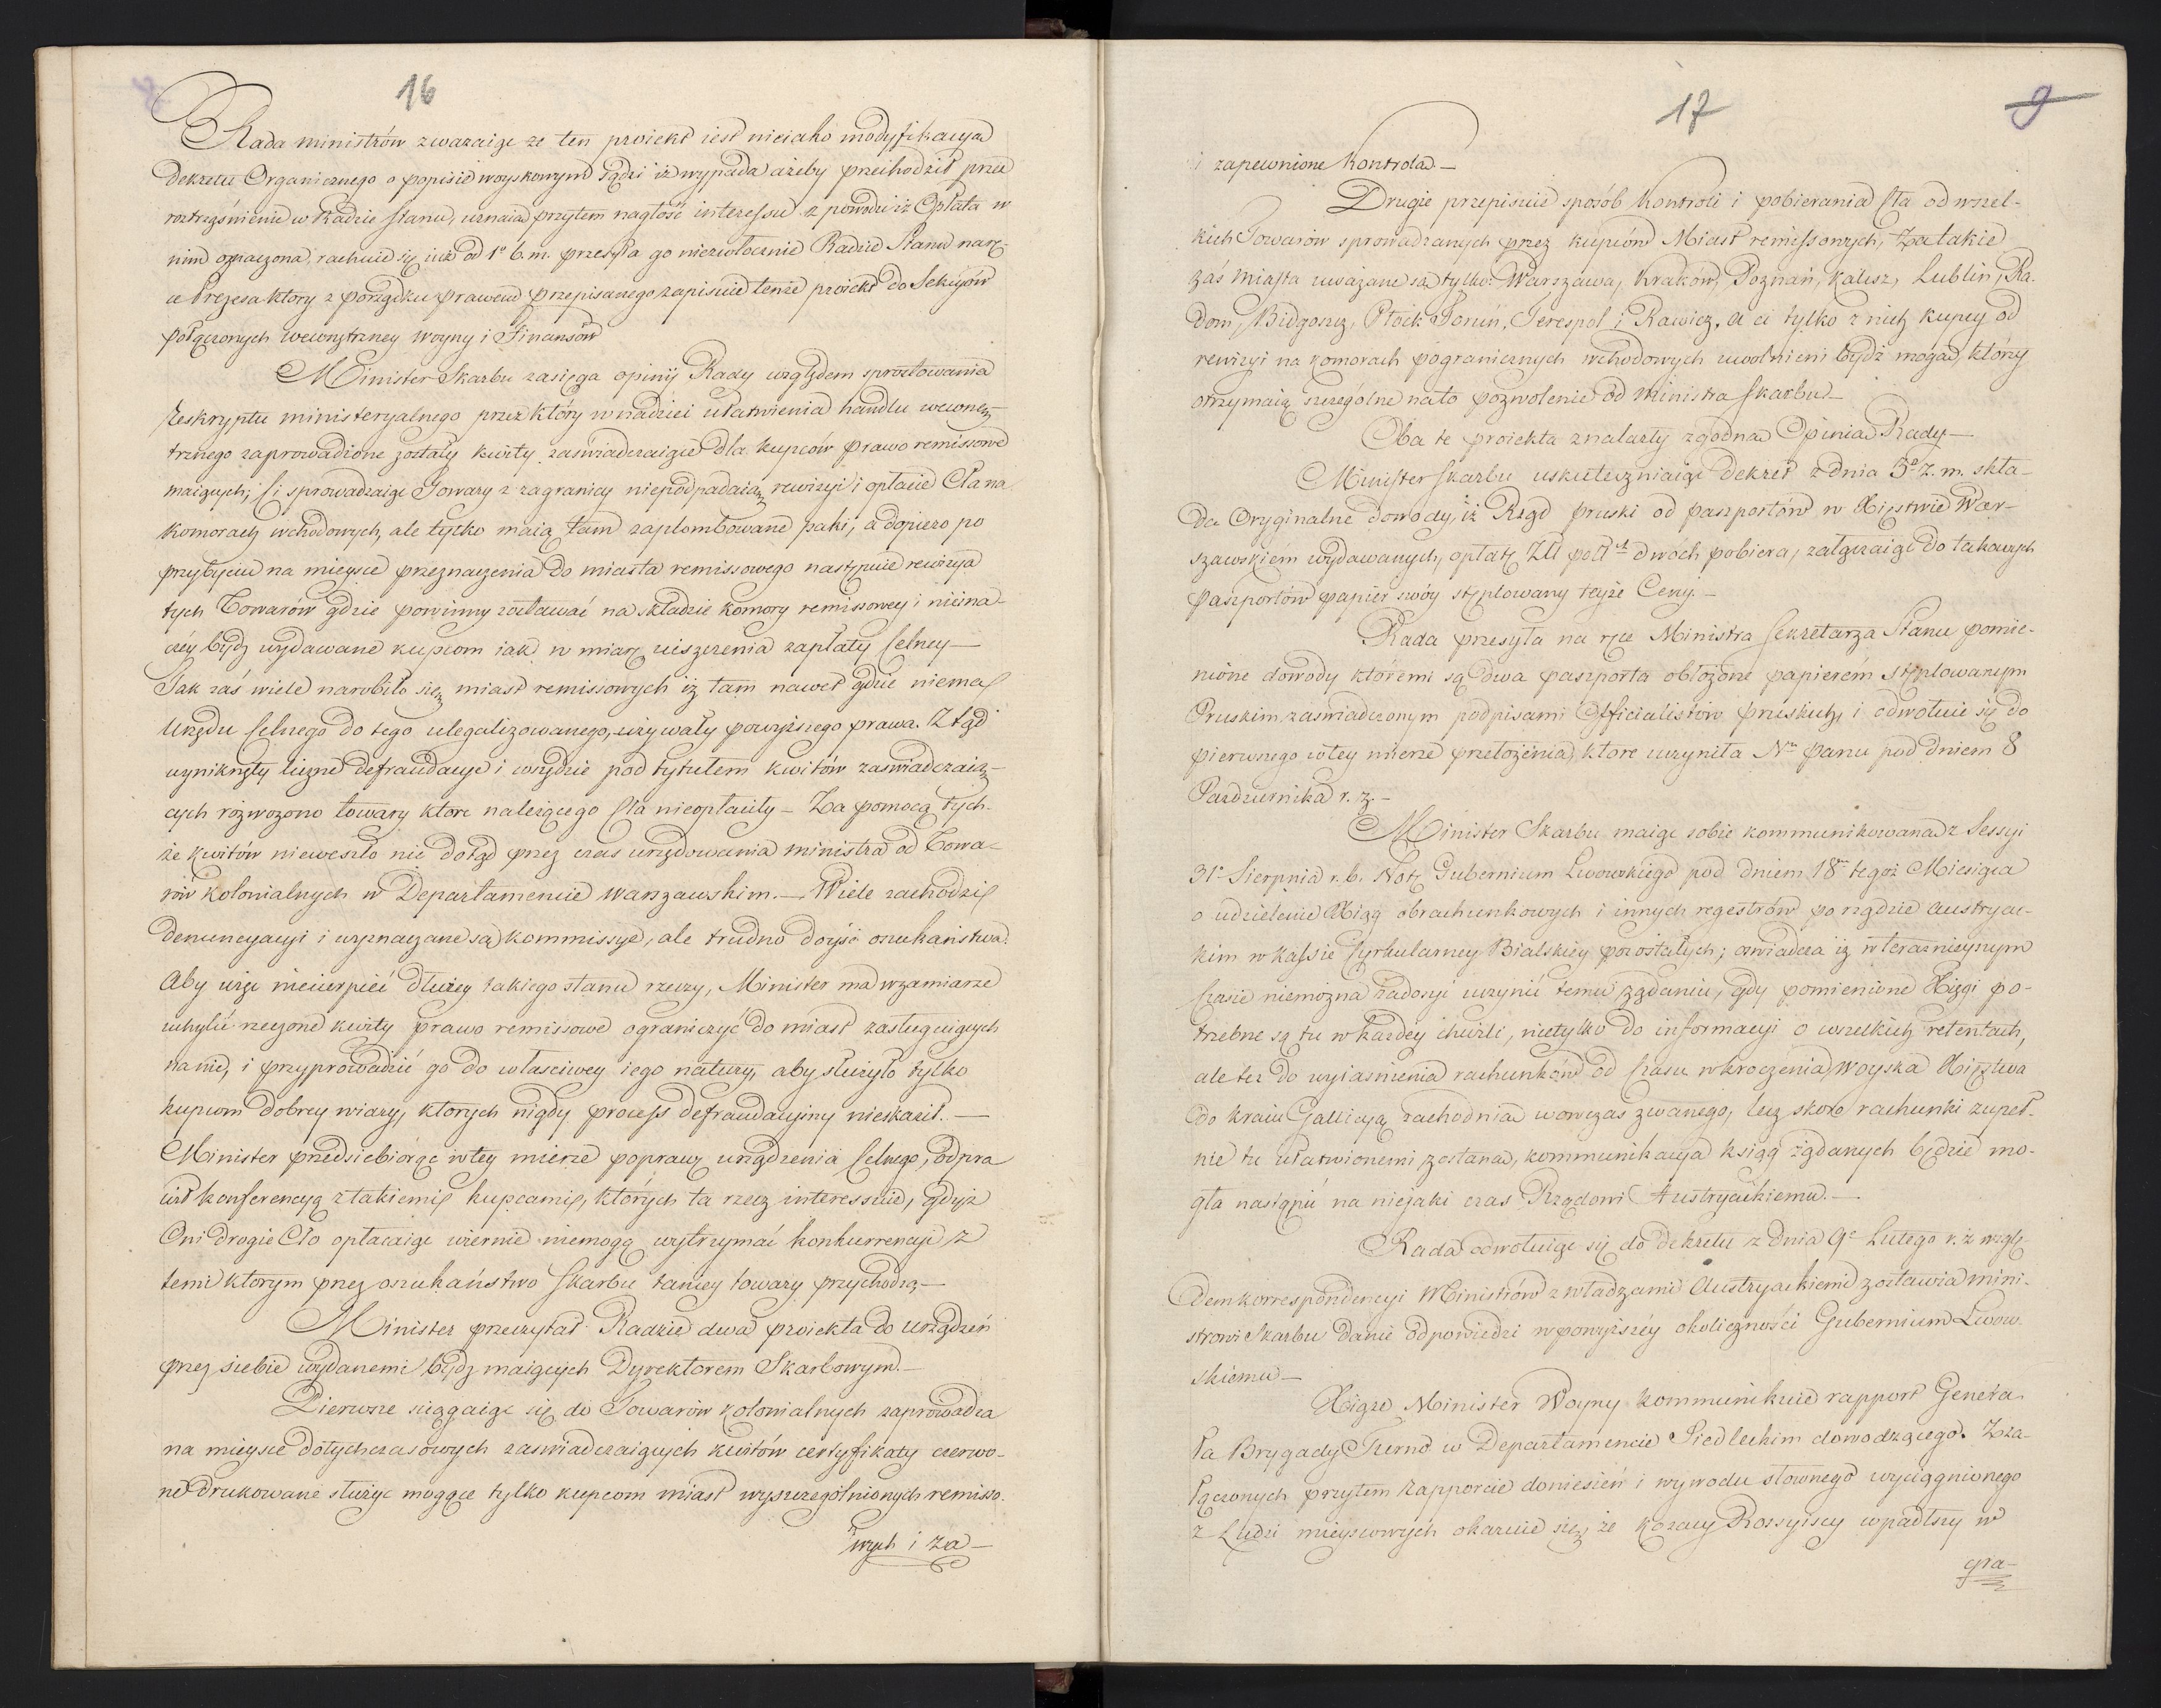 16
Rada ministrów zwazaiąc ze ten proiekt iest nieiako modyfikacya
Dekretu Organicznego o popisie woyskowym sądzi iż wypada ażeby przechodził przez
roztrząśnienie w Radzie stanu, uznaiąc przytem nagłość interessu z powodu iż Opłata w
nim oznaczona, rachuie się iuż od 1º b. m. przesyła go niezwłocznie Radzie Stanu na ręc-
ce Prezesa który z porządku prawem przepisanego zapisuie tenże proiekt do Sekcyów
połączonych wewnętrzney woyny i Finansów
Minister Skarbu zasięga opinij Rady względem sprostowania
reskryptu ministeryalnego przez który w nadziei ułatwienia handlu wewnę-
trznego zaprowadzone zostały kwity zaświadczaiące dla kupców prawo remissowe
maiących; Ci sprowadzaiąc Towary z zagranicy niepodpadaią rewizyi i opłacie Cła na
komorach wchodowych, ale tylko maią tam zaplombowane paki, a dopiero po
przybyciu na mieysce przeznaczenia do miasta remissowego następuie rewizya
tych Towarów gdzie powinny zostawać na składzie komory remissowey i nieina-
czéy bydź wydawane kupcom iak w miarę uiszczenia zapłaty Celney —
Jak zaś wiele narobiło się miast remissowych iż tam nawet gdzie niema
Urzędu Celnego do tego ulegalizowanego, używały powyższego prawa. Ztąd
wyniknęły liczne defraudacye i wszędzie pod tytułem kwitów zaświadczaią-
cych rozwożono towary ktore należącego Cła nieopłaciły — Za pomocą tych-
że kwitów nieweszło nic dotąd przez czas urzędowania ministra od Towa-
rów kolonialnych w Departamencie Warszawskim. — Wiele zachodzi
denuncyacyi i wyznaczane są kommissye, ale trudno doyść oszukaństwa.
Aby więc niecierpieć dłużey takiego stanu rzeczy, Minister ma w zamiarze
uchylić rzeczone kwity prawo remissowe ograniczyć do miast zasługuiących
na nie, i przyprowadzić go do właściwey iego natury, aby służyło tylko
kupcom dobrey wiary, ktorych nigdy process defraudacyiny nieskaził. —
Minister przedsiębiorąc w tey mierze poprawę urządzenia Celnego, odpra
wił konferencyą z takiemi kupcami, których ta rzecz interessuie, gdyż
Oni drogie Cło opłacaiąc wiernie niemogą wytrzymać konkurrencyi z
temi ktorym przez oszukaństwo Skarbu taniey towary przychodzą —
Minister przeczytał Radzie dwa proiekta do urządzeń
przez siebie wydanemi bydź maiących Dyrektorem Skarbowym. —
Pierwsze sciągaiąc się do Towarów kolonialnych zaprowadza
na mieysce dotychczasowych zaświadczaiących kwitów certyfikaty czerwo-
ne drukowane służyć mogące tylko kupcom miast wyszczególnionych remisso-
wych i za-
17
9
i zapewnione kontrola —
Drugie przepisuie sposób kontroli i pobierania Cła od wszel-
kich Towarów sprowadzanych przez kupców Miast remissowych, za takie
zaś miasta uważane są tylko: Warszawa, Kraków, Poznań, Kalisz, Lublin, Ra-
dom, Bidgoszcz, Płock Toruń, Terespol i Rawicz, a ci tylko z nich kupcy od
rewizyi na komorach pogranicznych wchodowych uwolnieni bydź mogą, którzy
otrzymaią szczególne na to pozwolenie od Ministra Skarbu —
Oba te proiekta znalazły zgodną Opinią Rady —
Minister Skarbu uskuteczniaiąc Dekret z dnia 5º z. m. skła-
da Oryginalne dowody, iż Rząd pruski od paszportów w Xięstwie War-
szawskiém wydawanych, opłatę Złl poll dwóch pobiera, załączaiąc do takowych
paszportów papier swóy stęplowany teyże Ceny. —
Rada przesyła na ręce Ministra Sekretarza Stanu pomie-
nione dowody któremi są dwa paszporta obłożone papierém stęplowanym
Pruskim zaświadczonym podpisami Officialistów pruskich, i odwołuie się do
pierwszego w tey mierze przełożenia, ktore uczyniła Nmu panu pod dniem 8
Pazdziernika r. z. —
Minister Skarbu maiąc sobie kommunikowaną z Sessyi
31º Sierpnia r. b. Notę Gubernium Lwowskiego pod dniem 18m tegoż Miesiąca
o udzielenie Xiąg obrachunkowych i innych regestrów po rządzie austryac-
kim w kassie Cyrkularney Bialskiéy pozostałych; oswiadcza iż w teraznieyszym
Czasie niemożna zadosyć uczynić temu żądaniu, gdy pomienione Xięgi po-
trzebne są tu w każdey chwili, nietylko do informacyi o wszelkich retentach,
ale też do wyiasnienia rachunków od Czasu wkroczenia woyska Xięstwa
do kraiu Gallicyą zachodnią wowczas zwanego, lecz skoro rachunki zupeł-
nie tu ułatwionemi zostaną, kommunikacya ksiąg żądanych będzie mo-
gła nastąpić na nieiaki czas Rządowi Austryackiemu. —
Rada odwołuiąc się do Dekretu z dnia 9º Lutego r. z wzglę-
dem korrespondencyi Ministrów z władzami Austryackiemi zostawia mini-
strowi Skarbu danie odpowiedzi w powyższéy okoliczności Gubernium Lwow-
skiemu —
Xiąże Minister Woyny kommunikuie rapport Genera-
ła Brygady Turno w Departamencie Siedleckim dowodzącego. Z za-
łączonych przytem rapporcie doniesień i wywodu słownego wyciągnionego
z Ludzi mieyscowych okazuie się, że kozacy Rossyiscy wpadłszy w
gra-